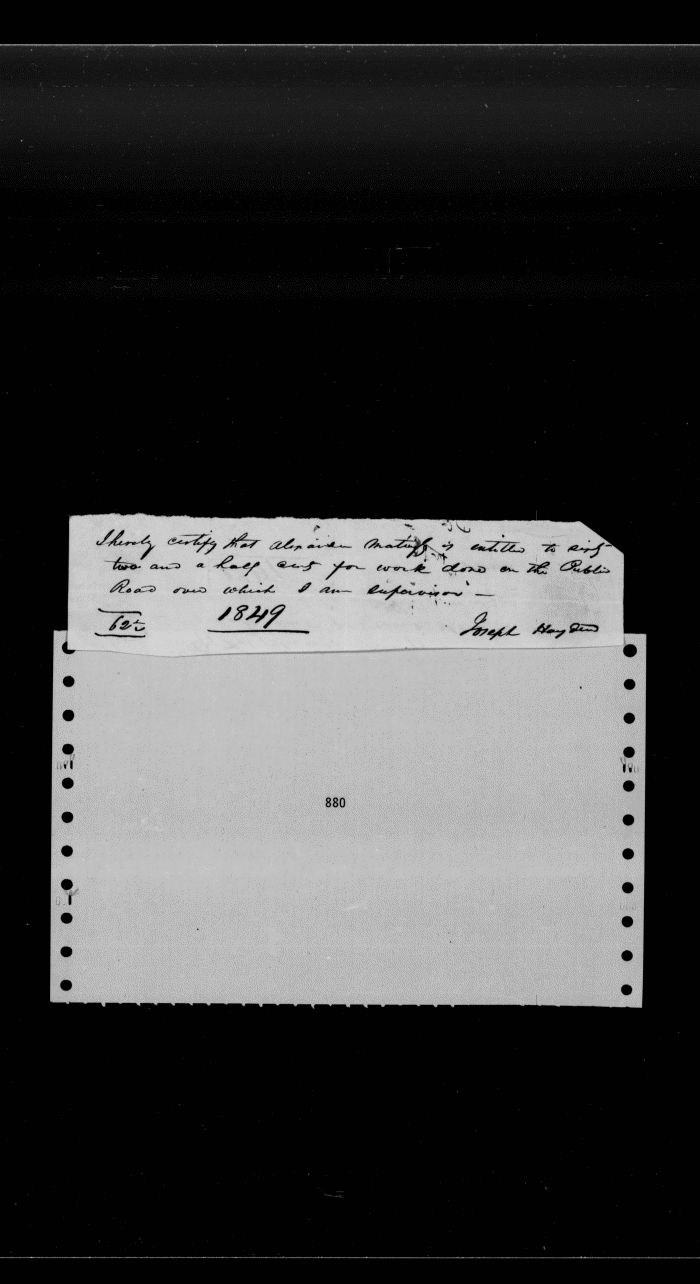 I hereby certify that Alexander is entitled to sixty
two and a half cents for work done on the Public
Road over which I am supervisor —
62½ 1849 Joseph Hayden
880